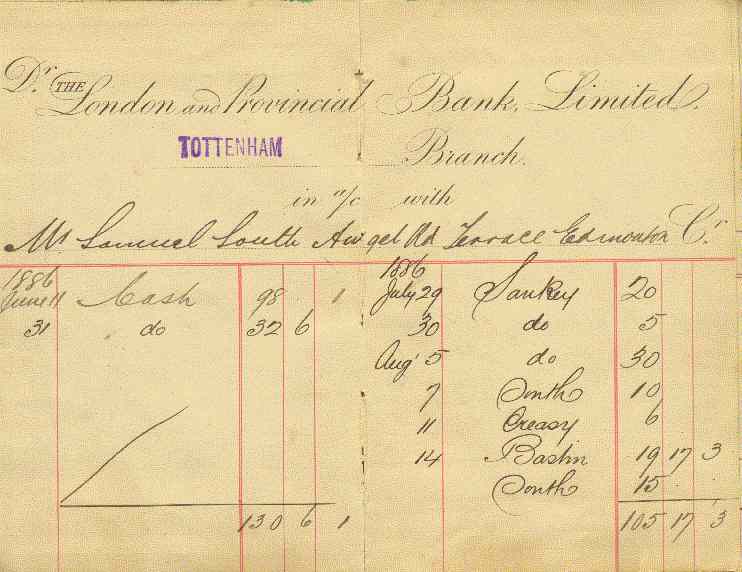 Dr. THE London and Provincial Bank, Limited.
TOTTENHAM Branch.
in a/c with
Mr Samuel South Angel Rd Terrace Edmonton Cr.
1886
June 11 Cash 98 . 1
31 do 32 6
130 6 1
1886
July 29 Sankey 20
30 do 5
Aug' 5 do 30
7 South 10
11 Creasy 6
14 Bastin 19 17 3
South 15 . .
105 17 3